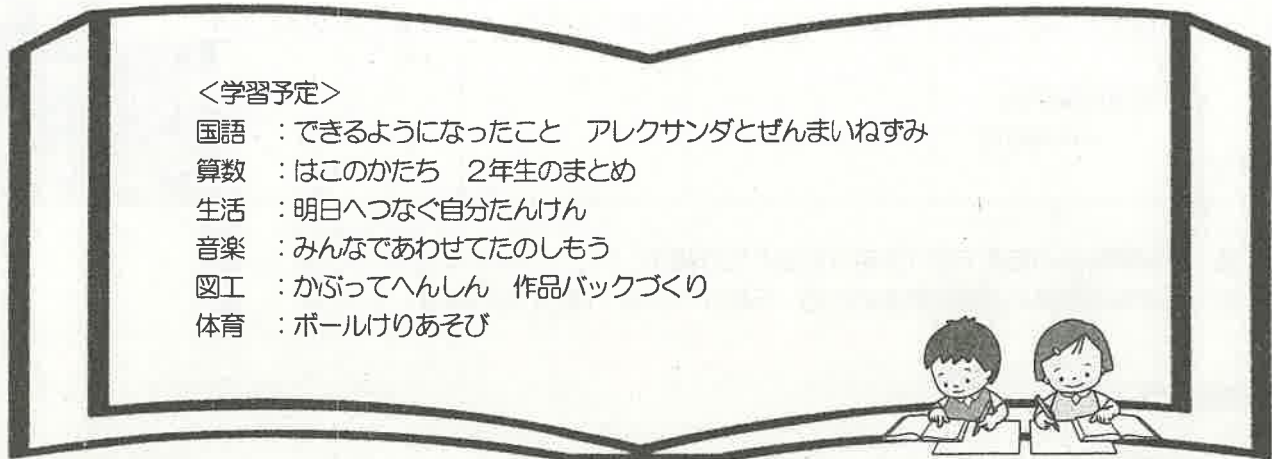 ＜学習予定＞
国語　：できるようになったこと　アレクサンダとぜんまいねずみ
算数　：はこのかたち　２年生のまとめ
生活　：明日へつなぐ自分たんけん
音楽　：みんなであわせてたのしもう
図工　：かぶってへんしん　作品バックづくり
体育　：ボールけりあそび